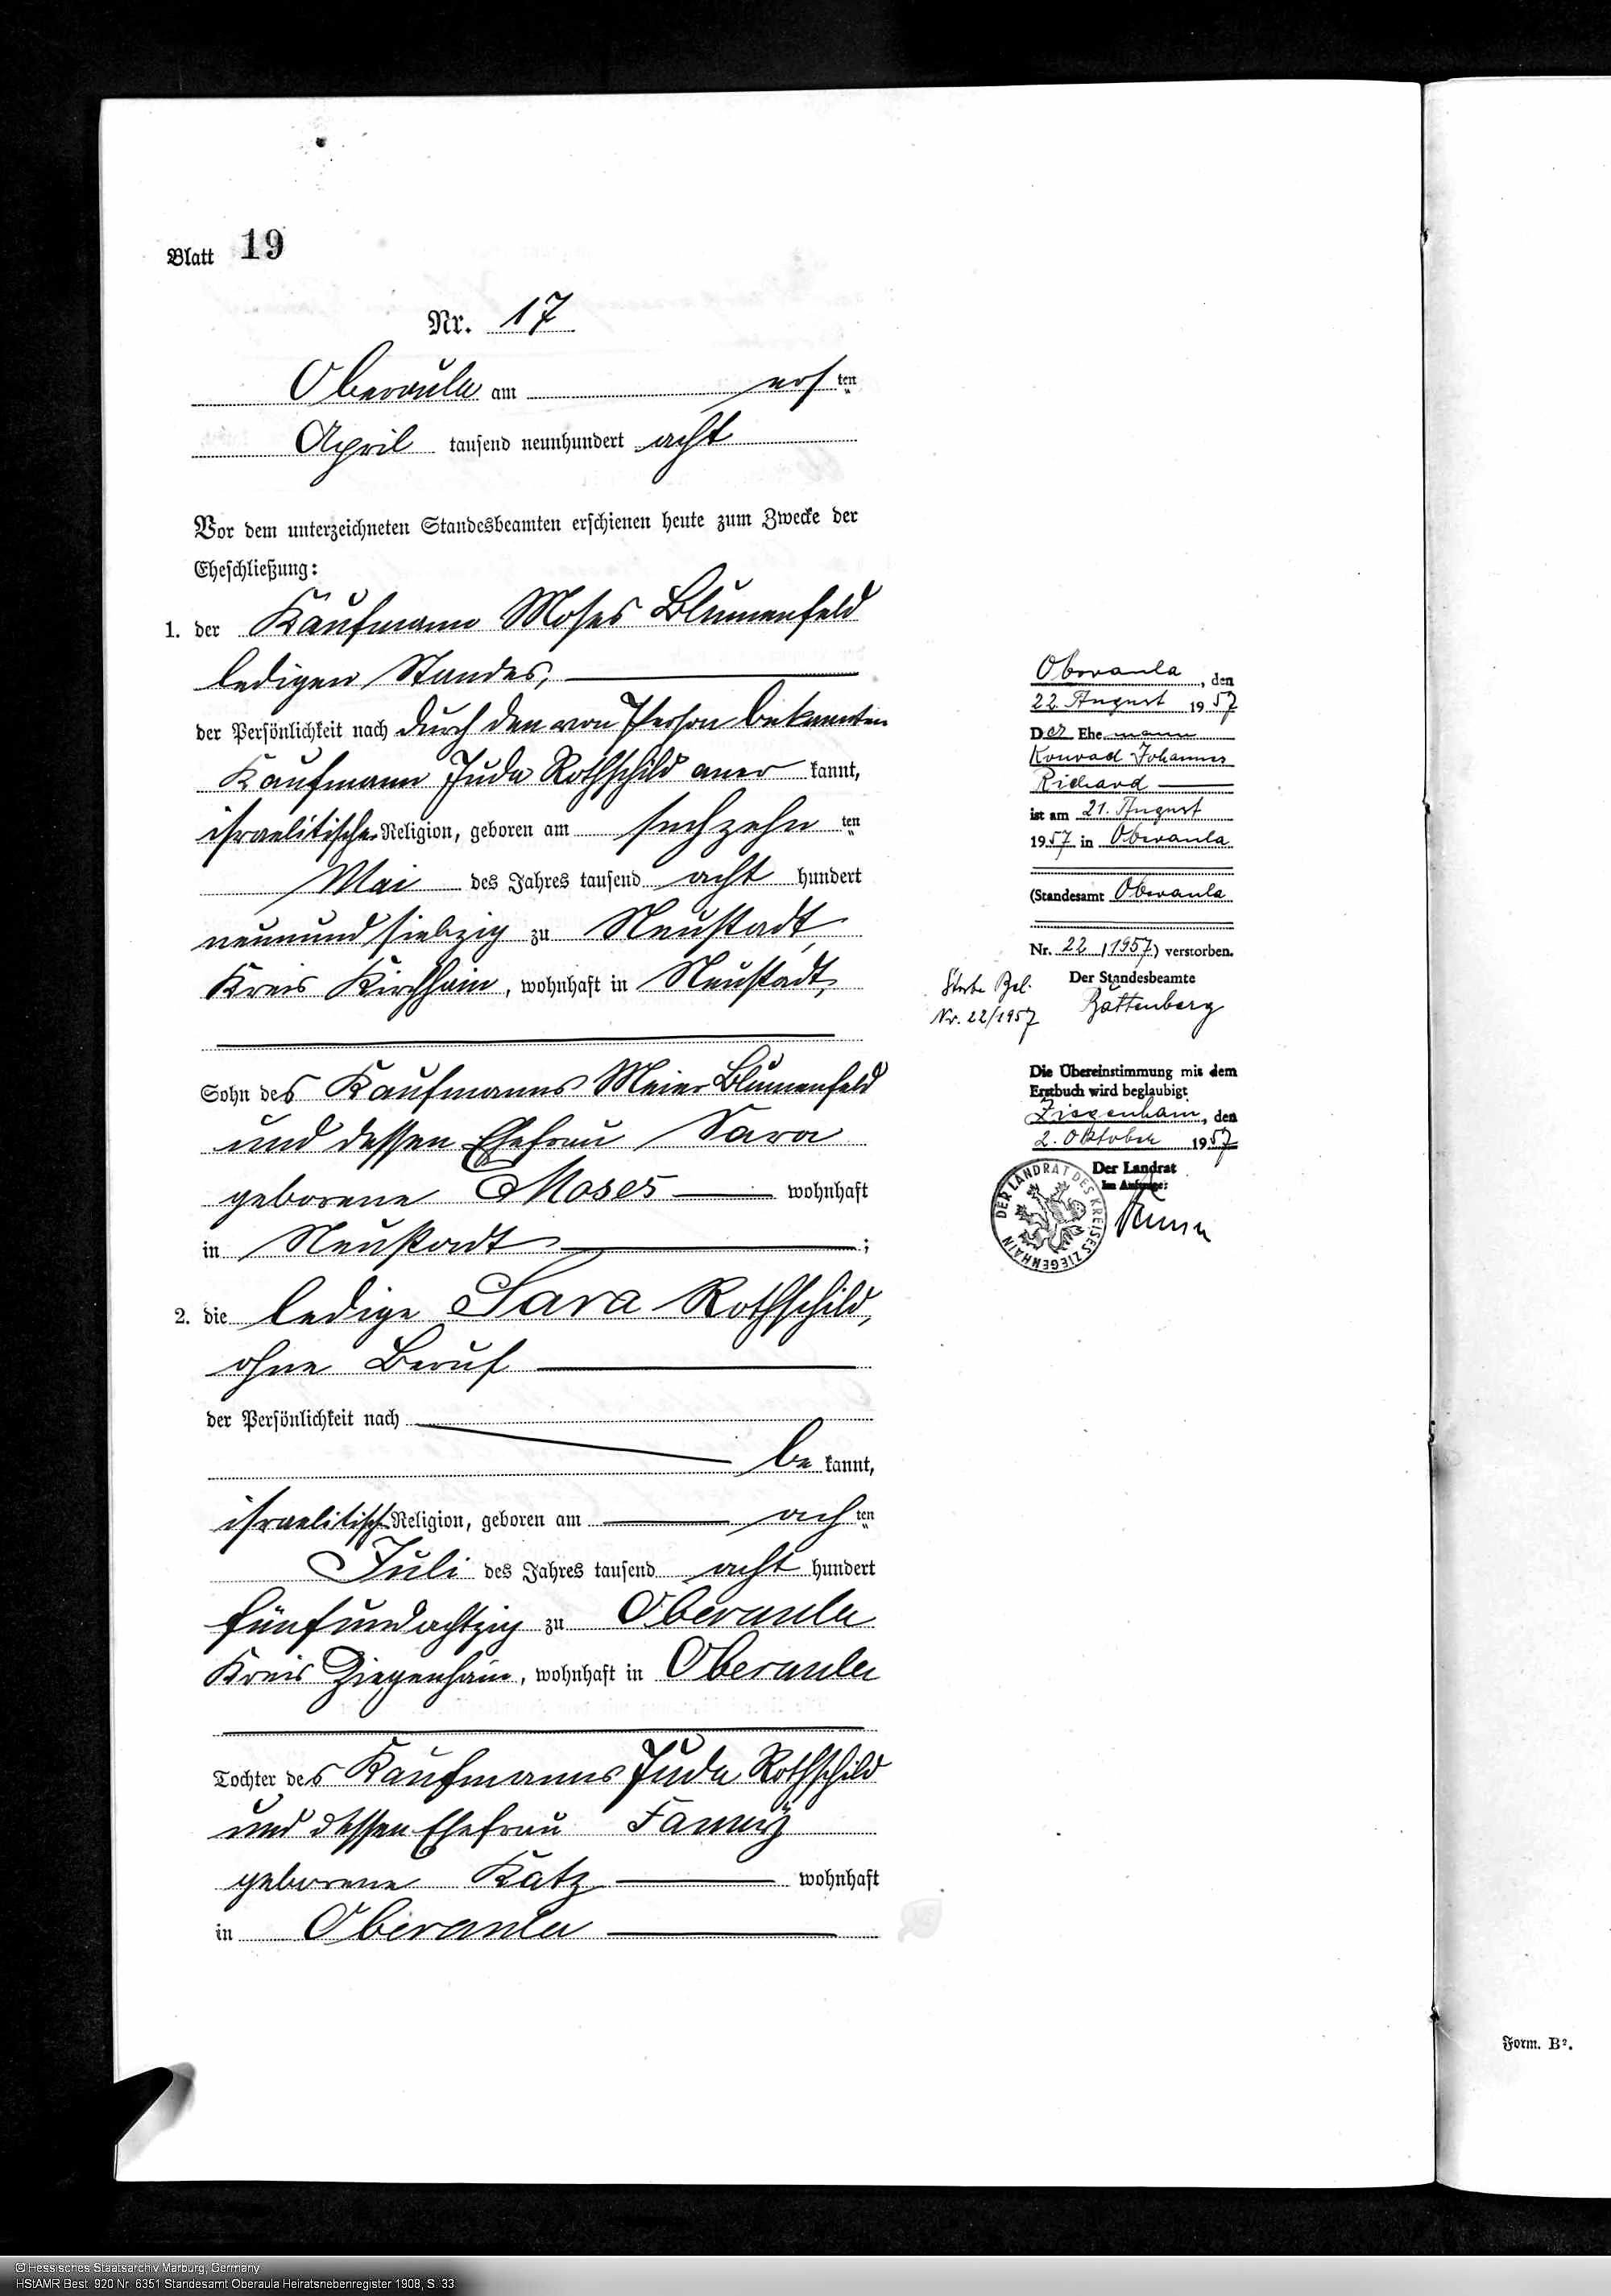 Blatt 19
Nr. 17
Oberaula am ersten
April tausend neunhundert acht
Vor dem unterzeichneten Standesbeamten erschienen heute zum Zwecke der
Eheschließung:
1. der Kaufmann Moses Blumenfeld
ledigen Standes,
der Persönlichkeit nach durch den von Person bekannten
Kaufmann Juda Rothschild aner kannt,
israelitischer Religion, geboren am sechzehn ten
Mai des Jahres tausend acht hundert
neunundsiebzig zu Neustadt,
Kreis Kirchhain, wohnhaft in Neustadt,
Sohn des Kaufmanns Meier Blumenfeld
und dessen Ehefrau Sara
geborene Moses wohnhaft
in Neustadt ;
2. die ledige Sara Rothschild,
ohne Beruf
der Persönlichkeit nach
be kannt,
israelitisch Religion, geboren am ach ten
Juli des Jahres tausend acht hundert
fünfundachtzig zu Oberaula
Kreis Ziegenhain, wohnhaft in Oberaula
Tochter des Kaufmanns Juda Rothschild
und dessen Ehefrau Fanny
geborene Katz wohnhaft
in Oberaula
Oberaula, den
22. August 1957
Der Ehemann
Konrad Johannes
Richard
ist am 21. August
1957 in Oberaula
(Standesamt Oberaula
Nr. 22 /1957) verstorben.
Der Standesbeamte
Sterbe Bel.
Nr. 22/1957
Die Übereinstimmung mit dem
Erstbuch wird beglaubigt
Ziegenhain, den
2. Oktober 1957
Der Landrat
Im Auftrage:
DER LANDRAT DES KREISES ZIEGENHAIN
Form. B².
© Hessisches Staatsarchiv Marburg, Germany
HStAMR Best. 920 Nr. 6351 Standesamt Oberaula Heiratsnebenregister 1908, S. 33